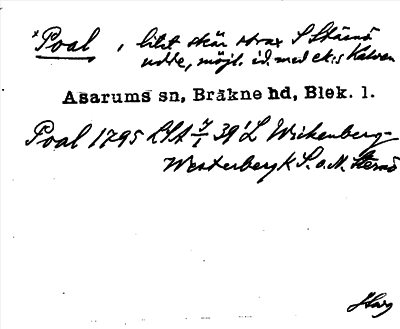 *Poal, litet skär strax S Stärnö
udde, möjl. id. med ek:s Kalven
Asarums sn, Bräkne hd, Blek. l.
Poal 1795 LSA 39 L Wickenberg-
Westerberg k S. o. N. Sternö